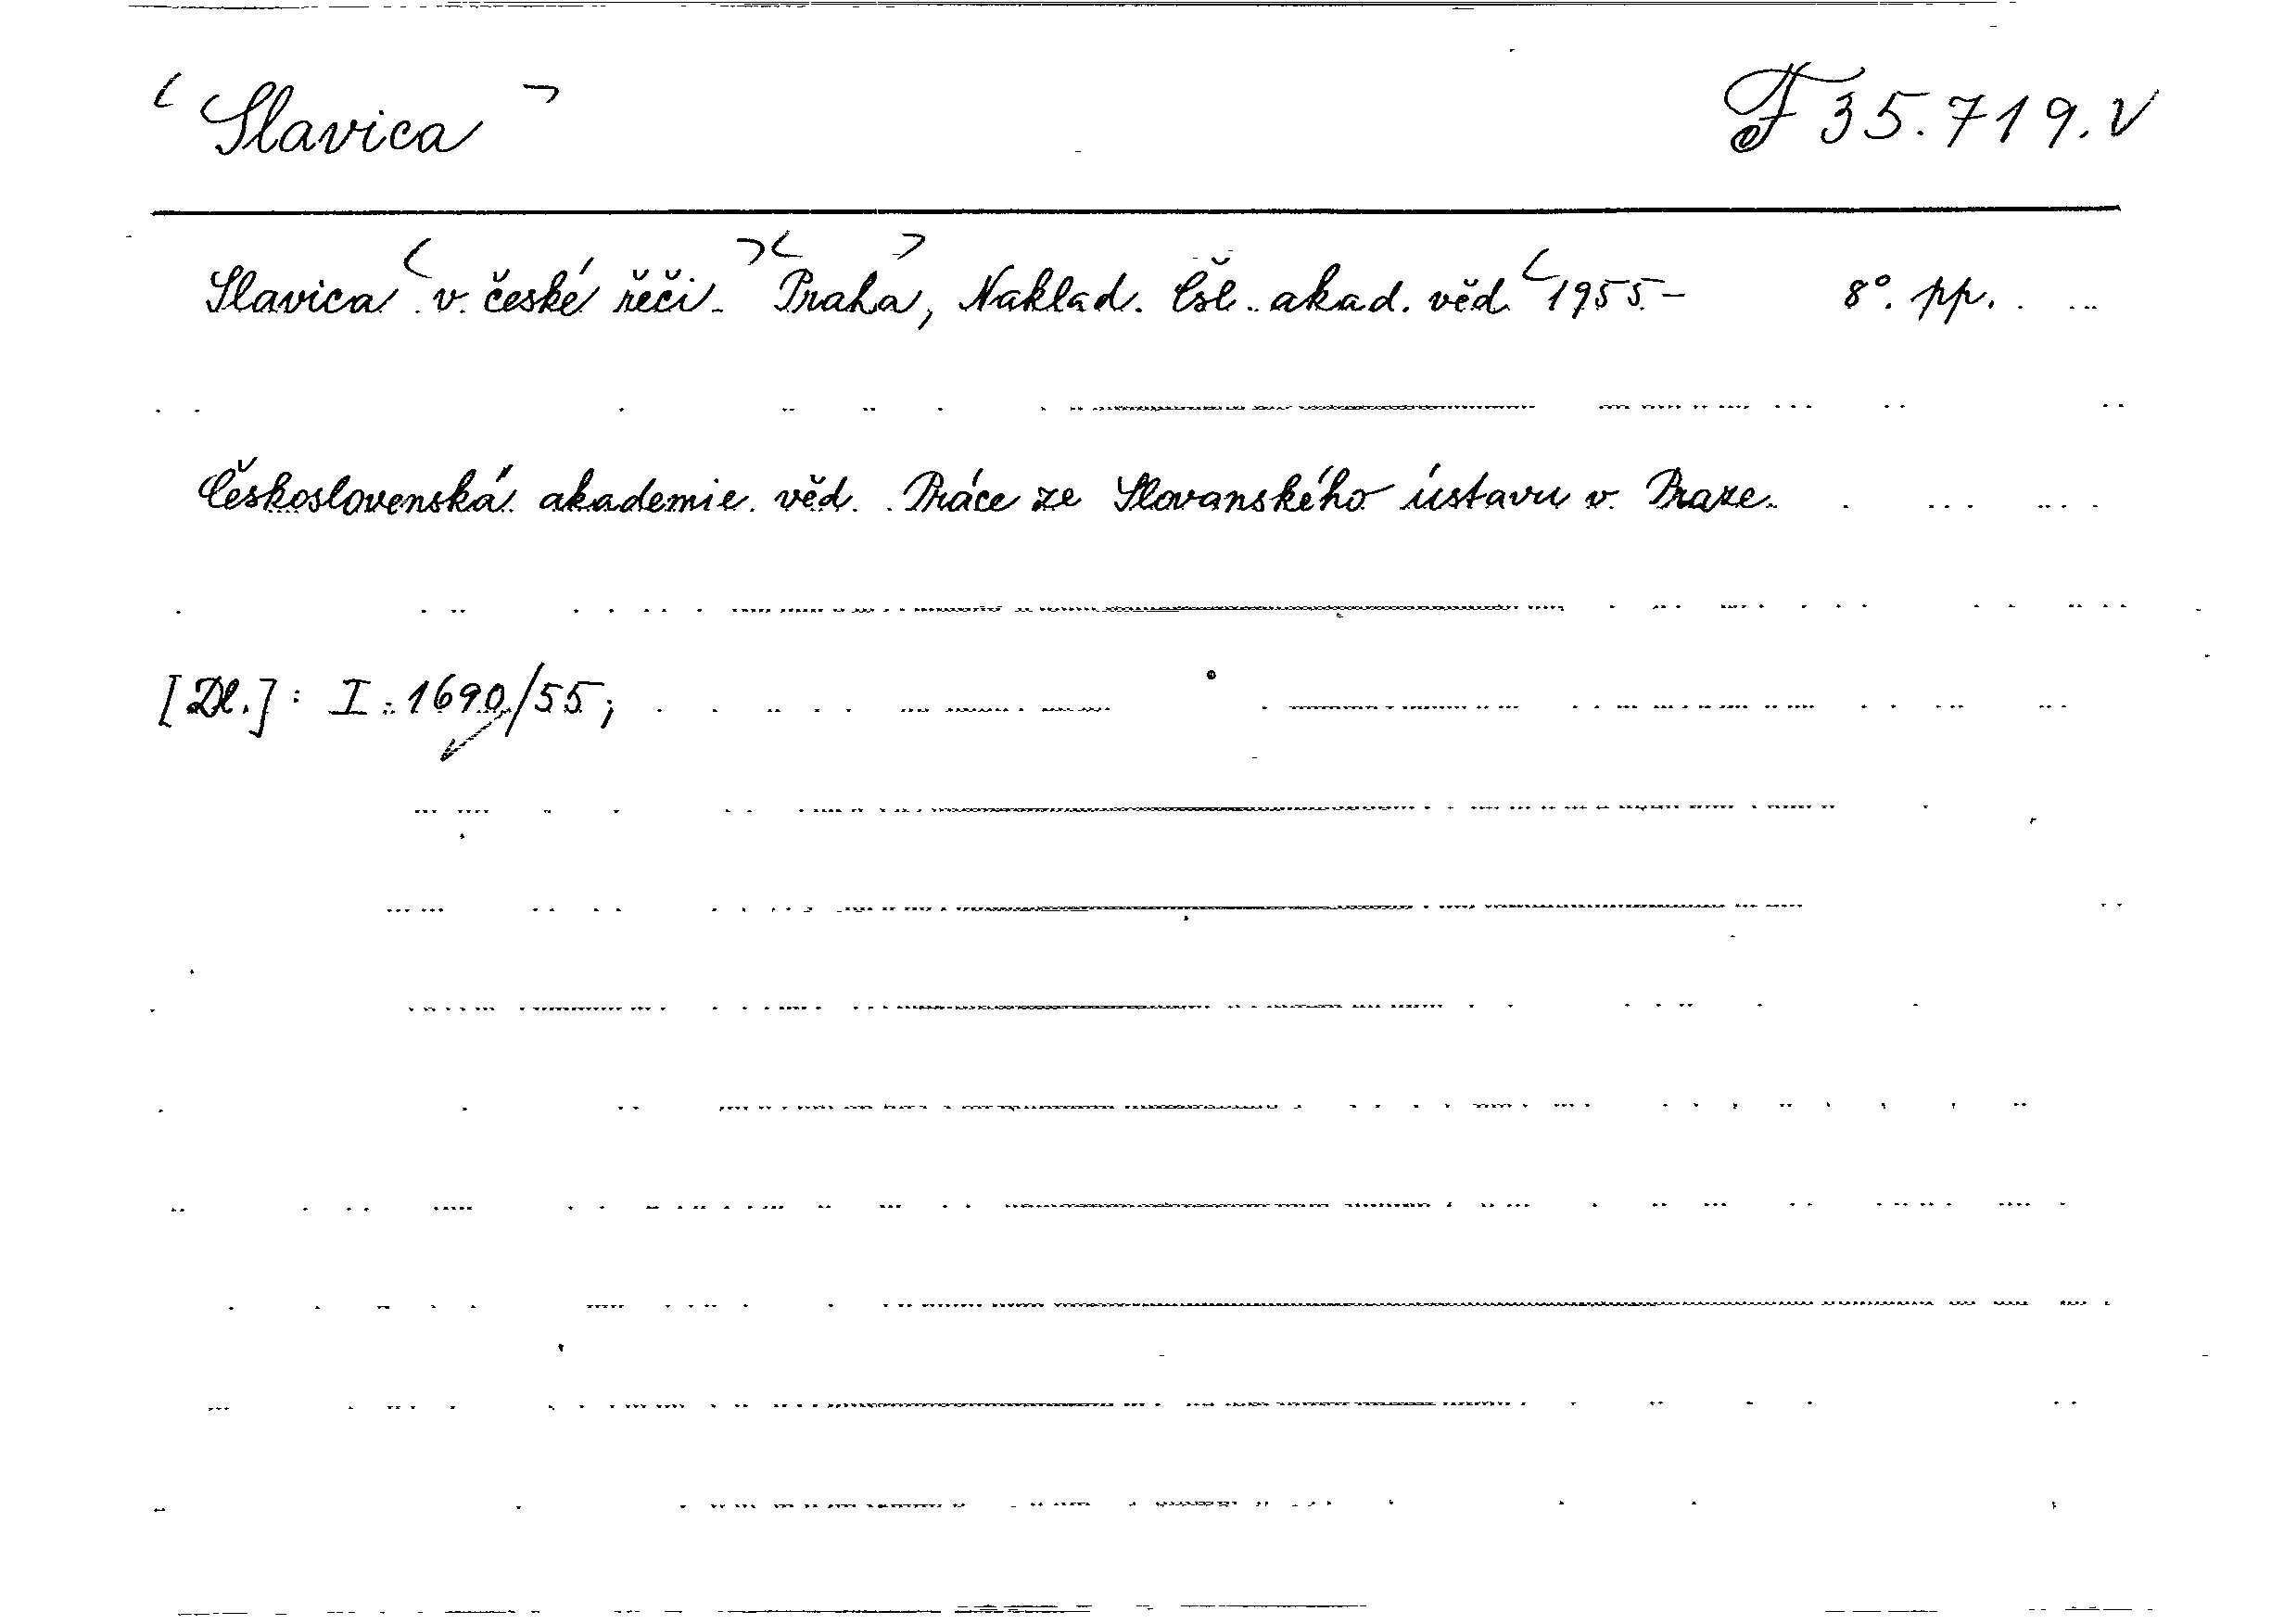 Slavica F 35.719.V
Slavica v české řeči. Praha, Naklad. Čsl. akad. věd. 1955- 8°. pp.
Československá akademie věd. Práce ze Slovanského ústavu v Praze.
[Dl.]: I: 1690/55;